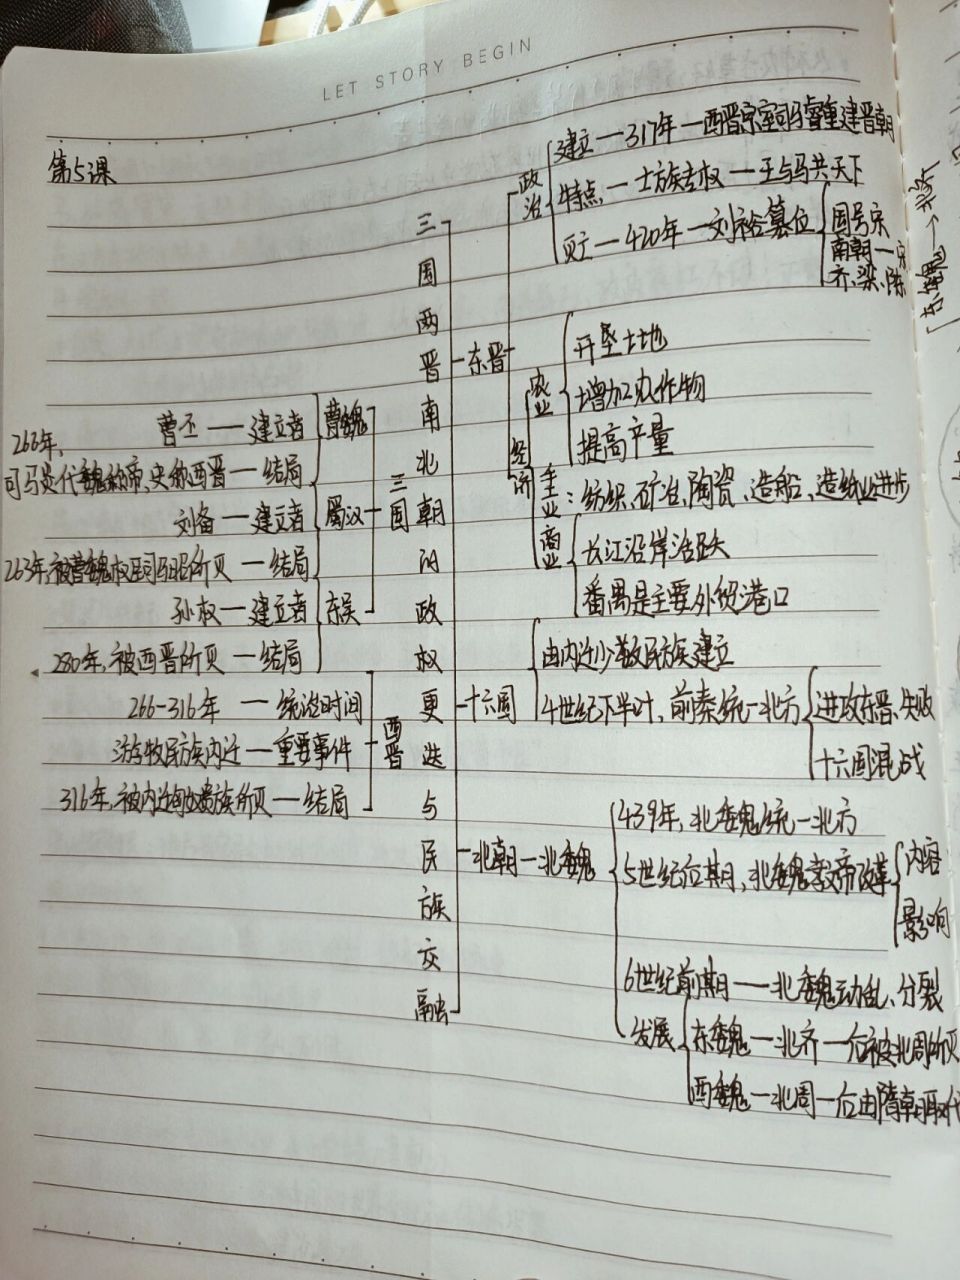 LET STORY BEGIN
第5课
三国两晋南北朝的政权更迭与民族交融
三国
曹魏
曹丕——建立者
266年,
司马炎代魏称帝,史称西晋—结局
蜀汉
刘备—建立者
263年,被曹魏权臣司马昭所灭—结局
东吴
孙权—建立者
280年,被西晋所灭—结局
西晋
266-316年—统治时间
游牧民族内迁—重要事件
316年,被内迁匈奴贵族所灭—结局
东晋
政治
建立—317年—西晋宗室司马睿重建晋朝
特点—士族专权—王与马共天下
灭亡—420年—刘裕篡位
国号宋
南朝—宋
齐、梁、陈
经济
农业
开垦土地
增加农作物
提高产量
手工业:纺织、矿冶、陶瓷、造船、造纸业进步
商业
长江沿岸活跃
番禺是主要外贸港口
十六国
由内迁少数民族建立
4世纪下半叶,前秦统一北方
进攻东晋,失败
十六国混战
北朝—北魏
439年,北魏统一北方
5世纪后期,北魏孝文帝改革
内容
影响
6世纪前期——北魏动乱、分裂
发展
东魏—北齐—后被北周所灭
西魏—北周—后由隋朝取代